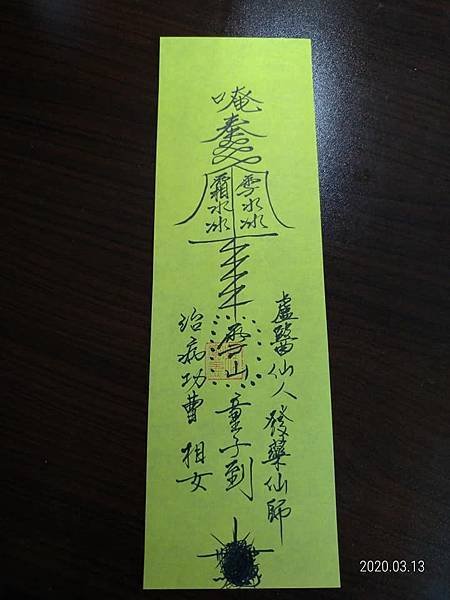 唵
奉
雪水冰
霜水冰
盧醫仙人發藥仙師
雪山童子到
治病功曹 相女
2020.03.13